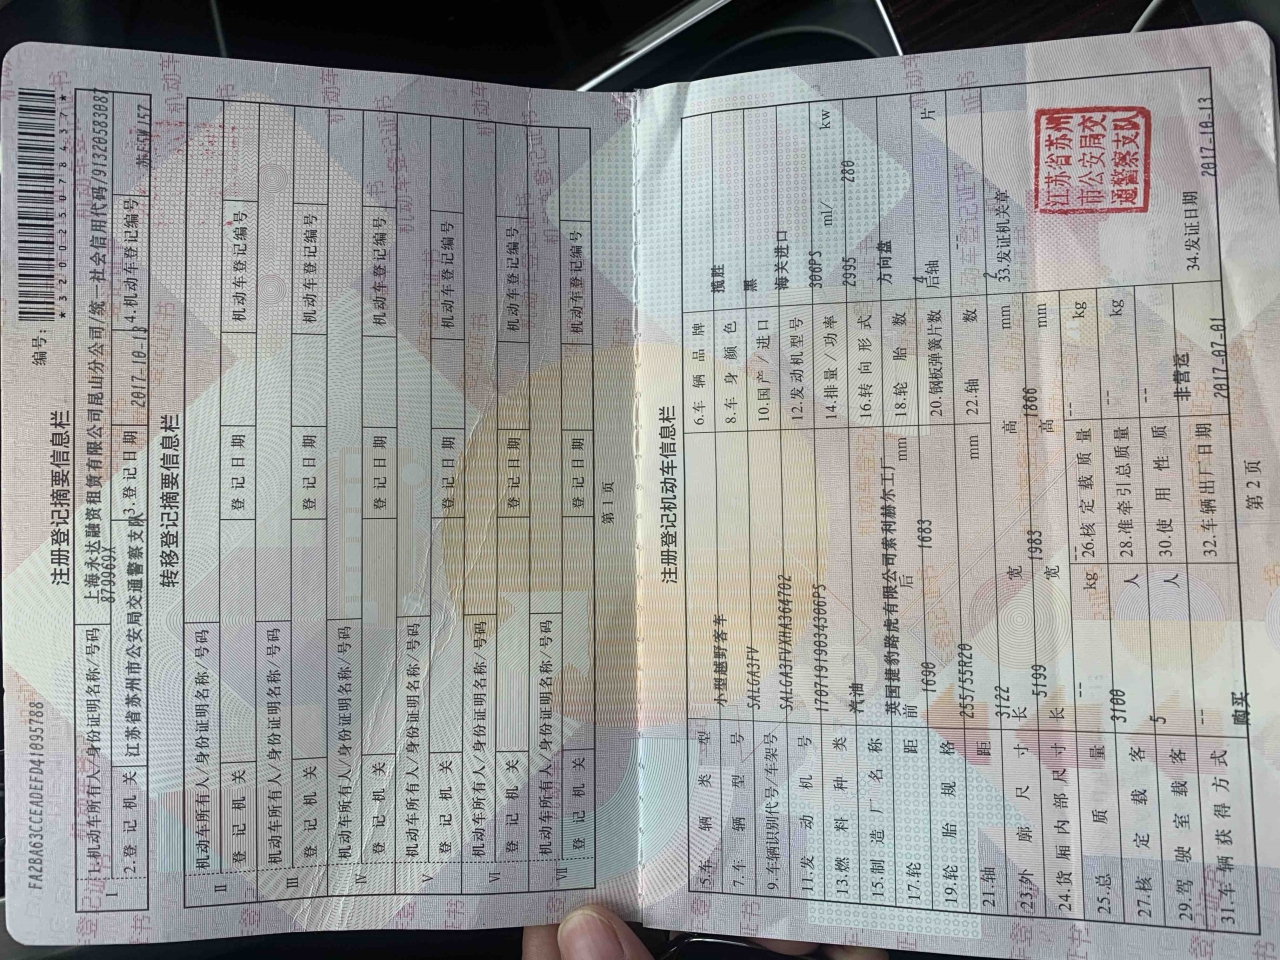 FA2BA63CCEADEFD41095788
编号：
*320025078437*
注册登记摘要信息栏
Ⅰ 1.机动车所有人/身份证明名称/号码 上海永达融资租赁有限公司昆山分公司/统一社会信用代码/91320583087
879969X
2.登记机关 江苏省苏州市公安局交通警察支队 3.登记日期 2017-10-13 4.机动车登记编号
转移登记摘要信息栏
Ⅱ 机动车所有人/身份证明名称/号码
登记机关 登记日期 机动车登记编号
Ⅲ 机动车所有人/身份证明名称/号码
登记机关 登记日期 机动车登记编号
Ⅳ 机动车所有人/身份证明名称/号码
登记机关 登记日期 机动车登记编号
Ⅴ 机动车所有人/身份证明名称/号码
登记机关 登记日期 机动车登记编号
Ⅵ 机动车所有人/身份证明名称/号码
登记机关 登记日期 机动车登记编号
Ⅶ 机动车所有人/身份证明名称/号码
登记机关 登记日期 机动车登记编号
第1页
注册登记机动车信息栏
5.车辆类型 小型越野客车 6.车辆品牌 揽胜
7.车辆型号 SALGA3FV 8.车身颜色 黑
9.车辆识别代号/车架号 SALGA3FVXHA364702 10.国产/进口 海关进口
11.发动机号 17071919034306PS 12.发动机型号 306PS
13.燃料种类 汽油 14.排量/功率 2995 ml/ 280 kw
15.制造厂名称 英国捷豹路虎有限公司索利赫尔工厂 16.转向形式 方向盘
17.轮距 前 1690 后 1683 mm 18.轮胎数 4
19.轮胎规格 255/55R20 20.钢板弹簧片数 后轴 -- 片
21.轴距 3122 mm 22.轴数 2
23.外廓尺寸 长 5199 宽 1983 高 1866 mm
33.发证机关章
24.货厢内部尺寸 长 -- 宽 -- 高 -- mm
江苏省苏州
市公安局交
通警察支队
25.总质量 3100 kg 26.核定载质量 -- kg
27.核定载客 5 人 28.准牵引总质量 -- kg
29.驾驶室载客 -- 人 30.使用性质 非营运
31.车辆获得方式 购买 32.车辆出厂日期 2017-07-01 34.发证日期 2017-10-13
第2页